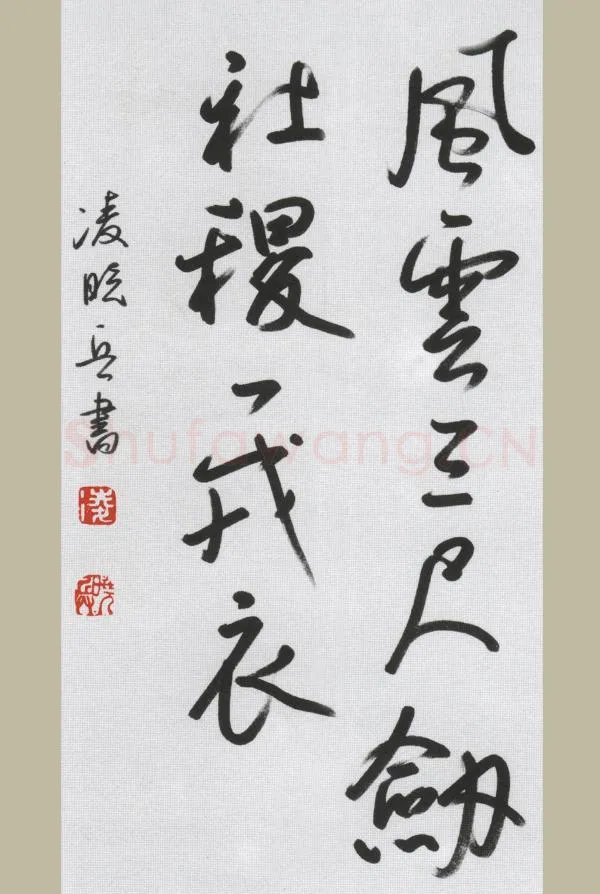 風雲三尺劍
社稷一戎衣
凌晓兵書
凌
Shufawang.CN